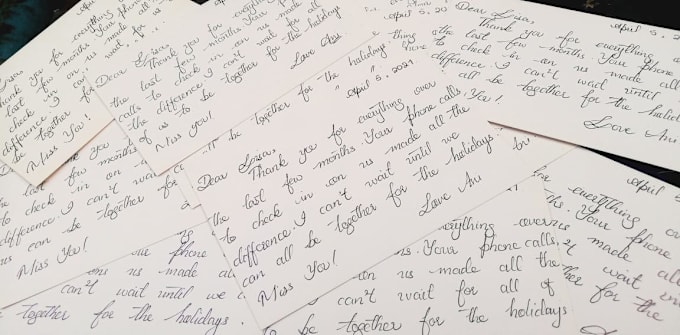 April 5,
you for everything
last few months. Your phone
check in on us made
difference. I can't wait
be together for
Miss You!
Dear Lisa,
Thank you for everything
the last few months. Your phone
calls to check in on us made all
the difference. I can't wait for all
of us to be together for the holidays
Love Au
Miss you!
April 5, 20
Dear Lisa,
Thank you for everything
the last few months. Your phone
to check in on us made all
difference. I can't wait until
all be together for the
Love Au
be together for the holidays
April 5, 2021
Dear Lisa,
Thank you for everything over
the last few months. Your phone calls
to check in on us made all the
difference. I can't wait until we
can all be together for the holidays
Love Au
Miss You!
the last few months
to check in on
difference. I can't
us can be together for
Miss You!
our phone
on us made all
can't wait until we
together for the holidays.
everything over
Your phone calls,
on us made all the
can't wait for all of
be together for the holidays
April 5
everything
us. Your phone
us made all
wait
for the